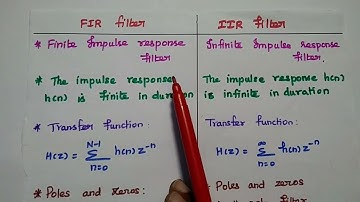 FIR filter
IIR filter
* Finite Impulse response
filter
Infinite Impulse Response
filter.
* The impulse response
h(n) is finite in duration
The impulse response h(n)
is infinite in duration
* Transfer function:
Transfer function:
H(z) = N-1 Σ n=0 h(n) z^-n
H(z) = ∞ Σ n=0 h(n) z^-n
* Poles and zeros:
Poles and zeros
filter